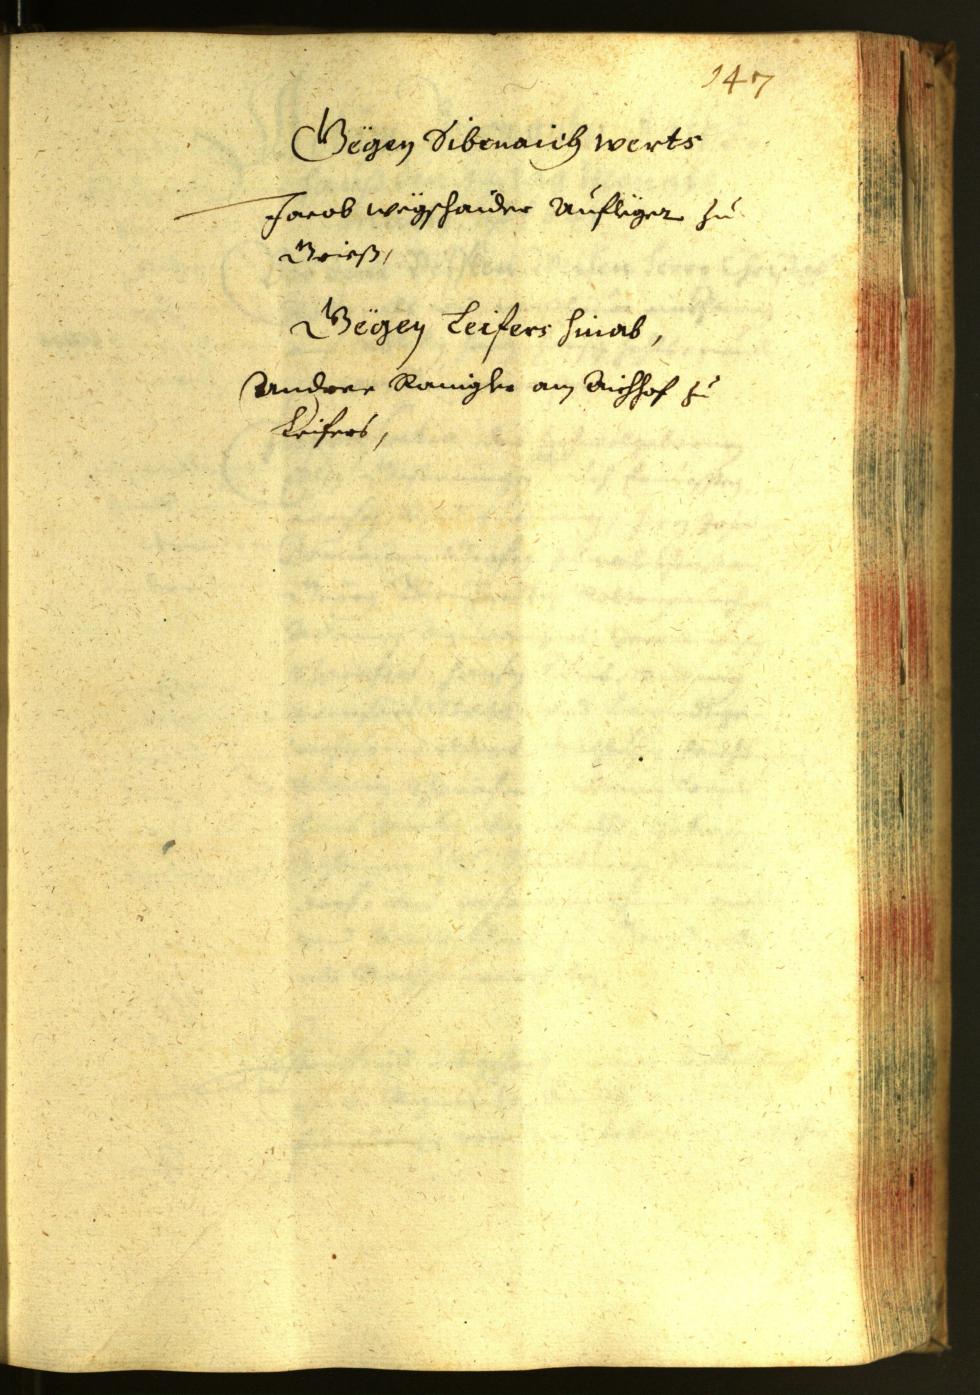 147
Gëgen Sibenaich werts
Jacob wëgschaider Aufleger zu
Grieß,
Gëgen Leifers hinab,
Andree Ranigler am Aichhof zu
Leifers,